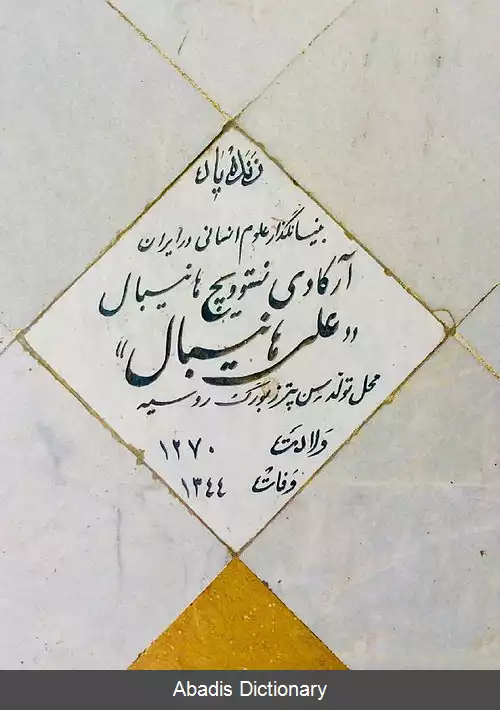 زنده یاد
بنیانگذار علوم انسانی در ایران
آرکادی نستوویچ هانیبال
«علی هانیبال»
محل تولد سن پترزبورگ روسیه
ولادت ۱۲۷۰
وفات ۱۳۴۴
Abadis Dictionary